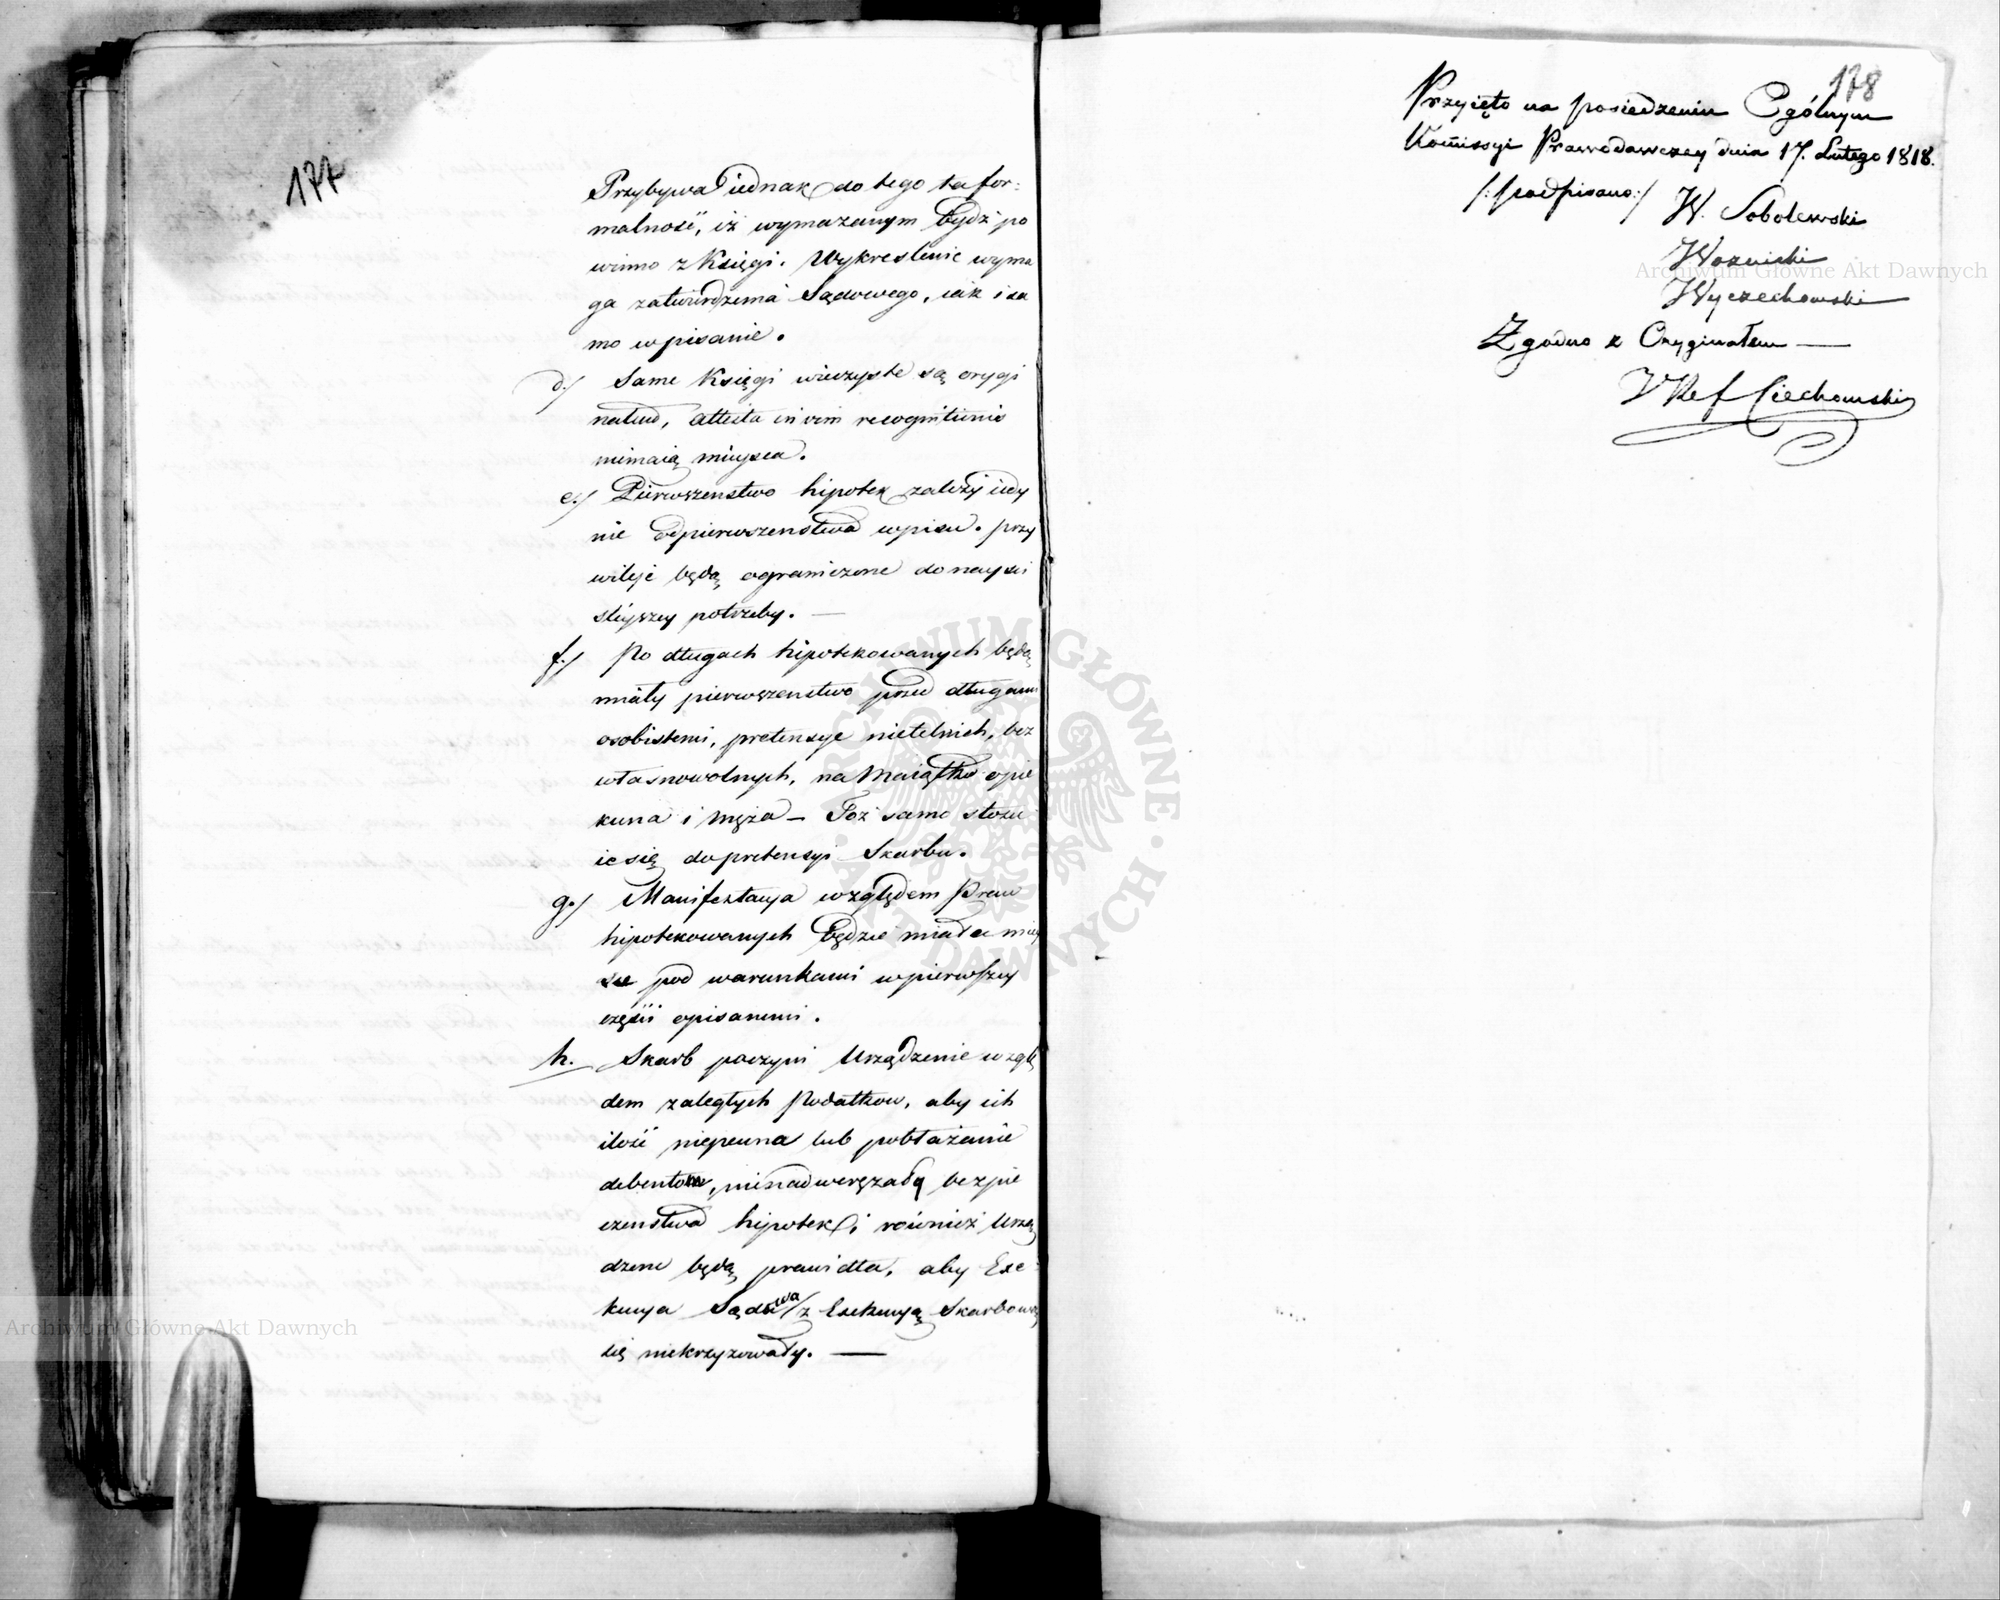 177
Przybywa iednak do tego ta for:
malność, iż wymazanym bydź po
winno z Księgi. Wykreslenie wyma
ga zatwierdzenia Sądowego, iak i sa
mo wpisanie.
d./ Same Księgi wieczyste są orygi
nałem, attesta in vim recognitionis
niemaią mieysca.
e./ Pierwszenstwo hipotek zależy iedy
nie od pierwszenstwa wpisu. przy
wileje będą ograniczone do nayści
śleyszey potrzeby. —
f./ Po długach hipotekowanych będą
miały pierwszenstwo przed długami
osobistemi, pretensye nieletnich, bez
własnowolnych, na Maiątku opie
kuna i męża — Toż samo stosu
ie się do pretensyi Skarbu.
g./ Manifestacya względem Praw
hipotekowanych będzie miała miey
sce pod warunkami w pierwszey
części opisanemi.
h. Skarb poczyni Urządzenie wzglę
dem zaległych Podatkow, aby ich
ilość niepewna lub pobłażanie
debentom, nienadwerężały bezpie
czenstwa hipotek i również Urzą
dzone będą prawidła, aby Exe
kucya Sądowa z Exekucyą Skarbową
się niekrzyzowały. —
178
Przyięto na posiedzeniu Ogólnym
Kommissyi Prawodawczey dnia 17. Lutego 1818.
/:podpisano:/ W. Sobolewski
Woznicki
Wyczechowski
Zgodno z Oryginałem —
Ciechowski
Archiwum Główne Akt Dawnych
Archiwum Główne Akt Dawnych
ARCHIWUM GŁÓWNE
AKT DAWNYCH